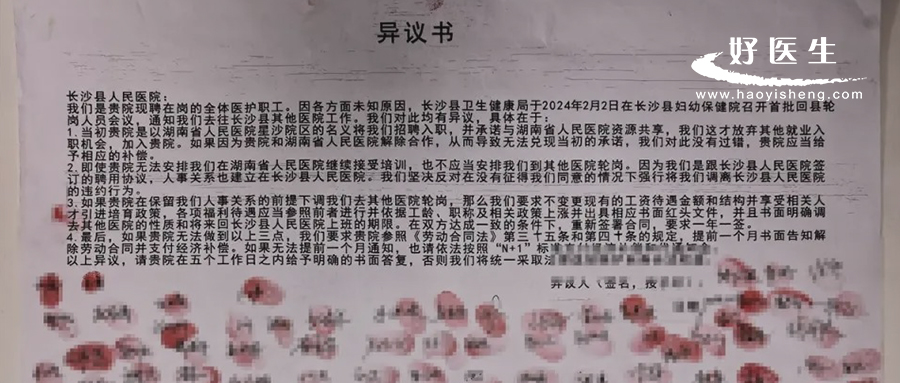 异议书
好医生
www.haoyisheng.com
长沙县人民医院：
我们是贵院现聘在岗的全体医护职工。因各方面未知原因，长沙县卫生健康局于2024年2月2日在长沙县妇幼保健院召开首批回县轮
岗人员会议，通知我们去往长沙县其他医院工作。我们对此均有异议，具体在于：
1.当初贵院是以湖南省人民医院星沙院区的名义将我们招聘入职，并承诺与湖南省人民医院资源共享，我们这才放弃其他就业入
职机会，加入贵院。如果因为贵院和湖南省人民医院解除合作，从而导致无法兑现当初的承诺，我们对此没有过错，贵院应当给
予相应的补偿。
2.即使贵院无法安排我们在湖南省人民医院继续接受培训，也不应当安排我们到其他医院轮岗，因为我们是跟长沙县人民医院签
订的聘用协议，人事关系也建立在长沙县人民医院。我们坚决反对在没有征得我们同意的情况下强行将我们调离长沙县人民医院
的违约行为。
3.如果贵院在保留我们人事关系的前提下调我们去其他医院轮岗，那么我们要求不变更现有的工资待遇金额和结构并享受相关人
才引进培育政策，各项福利待遇应当参照前者进行并依据工龄、职称及相关政策上涨并出具相应书面红头文件，并且书面明确调
去其他医院的性质和将来回长沙县人民医院上班的期限。在双方达成一致的条件下，重新签署合同，要求一年一签。
4.最后，如果贵院无法做到以上三点，我们要求贵院参照《劳动合同法》第三十五条和第四十条的规定，提前一个月书面告知解
除劳动合同并支付经济补偿。如果无法提前一个月通知，也请依法按照"N+1"标准
以上异议，请贵院在五个工作日之内给予明确的书面答复，否则我们将统一采取
异议人（签名，按